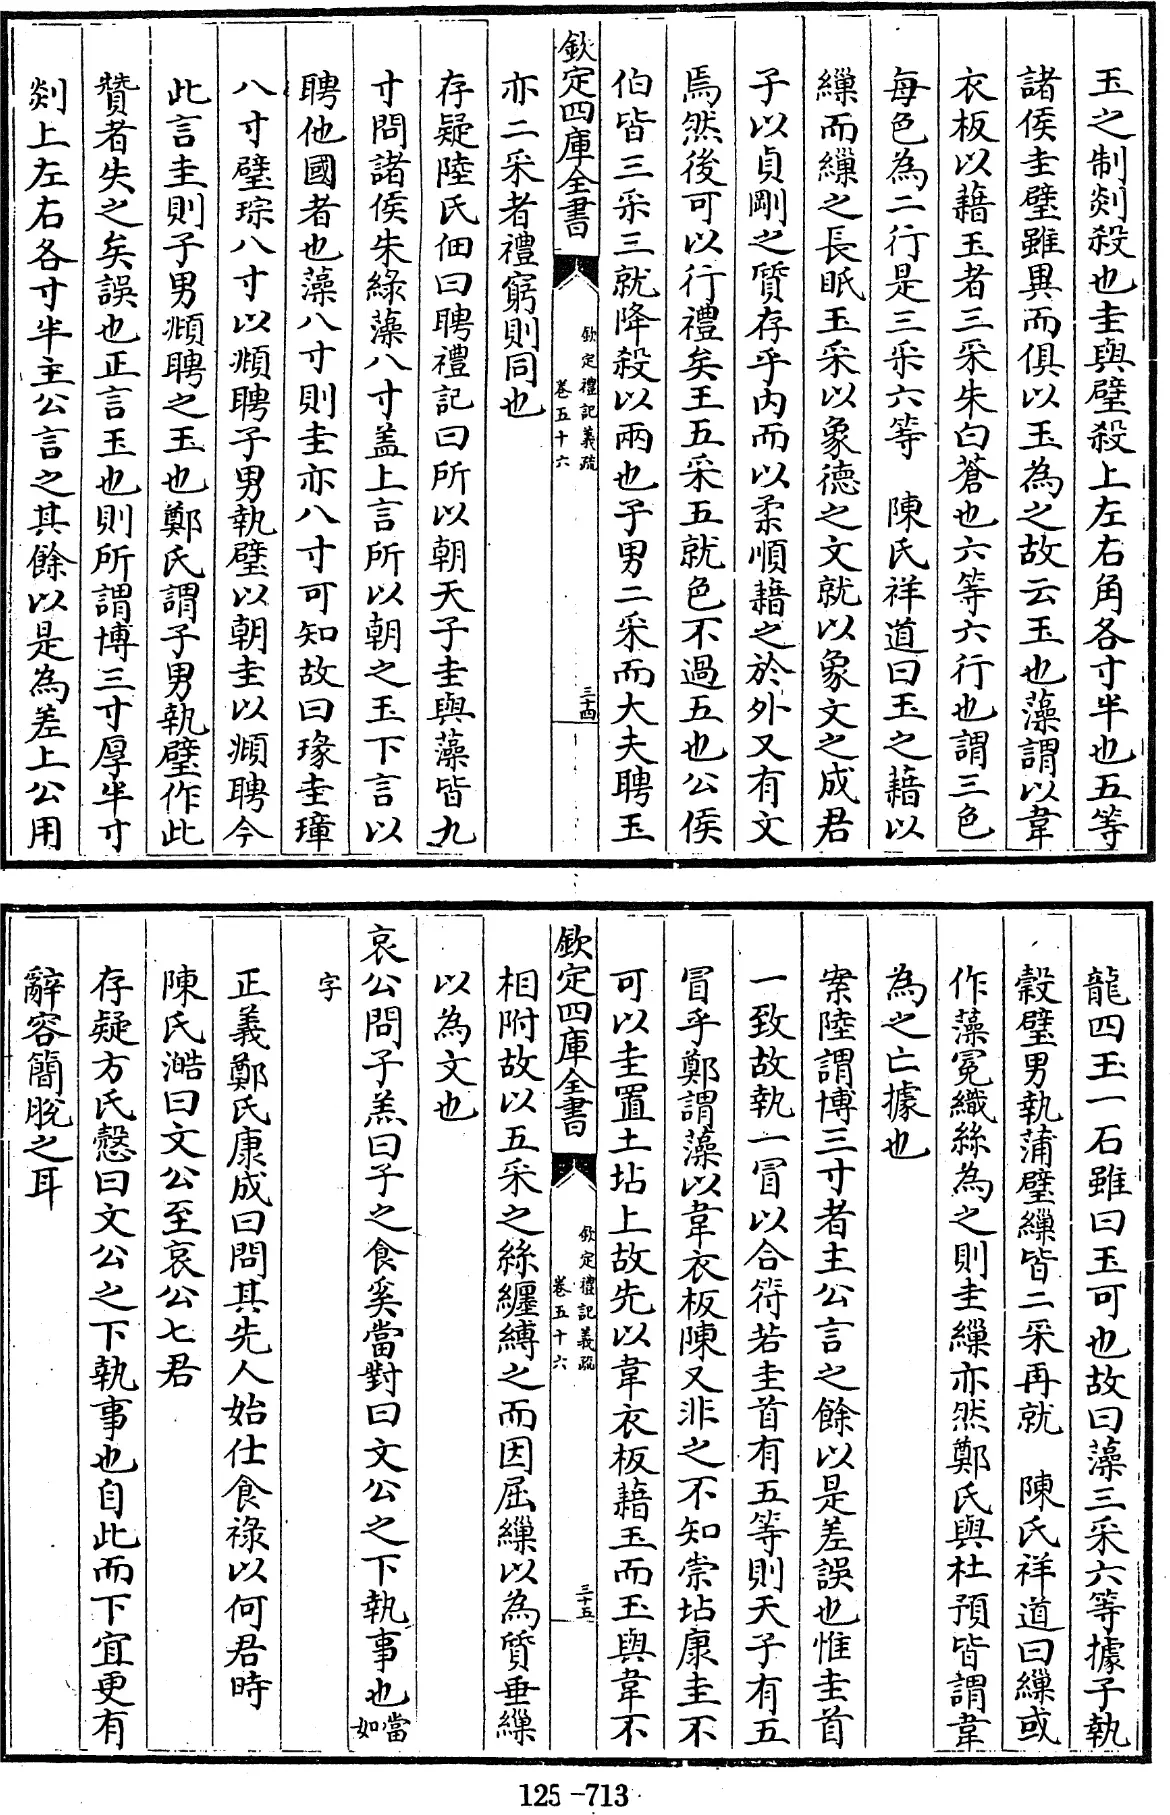 玉之制剡殺也圭與璧殺上左右角各寸半也五等
諸侯圭璧雖異而俱以玉為之故云玉也藻謂以韋
衣板以藉玉者三采朱白蒼也六等六行也謂三色
每色為二行是三采六等　陳氏祥道曰玉之藉以
繅而繅之長眂玉采以象德之文就以象文之成君
子以貞剛之質存乎内而以柔順藉之於外又有文
焉然後可以行禮矣王五采五就色不過五也公侯
伯皆三采三就降殺以兩也子男二采而大夫聘玉
欽定四庫全書
欽定禮記義疏
卷五十六
三十四
亦二采者禮窮則同也
存疑陸氏佃曰聘禮記曰所以朝天子圭與藻皆九
寸問諸侯朱綠藻八寸盖上言所以朝之玉下言以
聘他國者也藻八寸則圭亦八寸可知故曰瑑圭璋
八寸璧琮八寸以頫聘子男執璧以朝圭以頫聘今
此言圭則子男頫聘之玉也鄭氏謂子男執璧作此
贊者失之矣誤也正言玉也則所謂博三寸厚半寸
剡上左右各寸半主公言之其餘以是為差上公用
龍四玉一石雖曰玉可也故曰藻三采六等據子執
穀璧男執蒲璧繅皆二采再就　陳氏祥道曰繅或
作藻冕織絲為之則圭繅亦然鄭氏與杜預皆謂韋
為之亡據也
案陸謂博三寸者主公言之餘以是差誤也惟圭首
一致故執一冒以合符若圭首有五等則天子有五
冒乎鄭謂藻以韋衣板陳又非之不知崇坫康圭不
可以圭置土坫上故先以韋衣板藉玉而玉與韋不
欽定四庫全書
欽定禮記義疏
卷五十六
三十五
相附故以五采之絲纏縛之而因屈繅以為質垂繅
以為文也
哀公問子羔曰子之食奚當對曰文公之下執事也當如
字
正義鄭氏康成曰問其先人始仕食祿以何君時
陳氏澔曰文公至哀公七君
存疑方氏慤曰文公之下執事也自此而下宜更有
辭容簡脫之耳
125-713